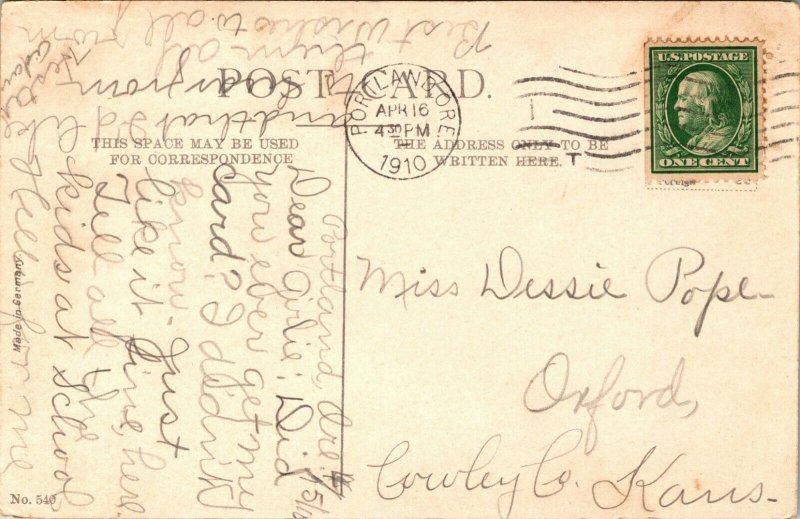 POST CARD.
THIS SPACE MAY BE USED
FOR CORRESPONDENCE
THE ADDRESS ONLY TO BE
WRITTEN HERE.
PORTLAND ORE
APR 16
4 30 PM
1910
T
U.S. POSTAGE
ONE CENT
Miss Dessie Pope
Oxford,
Cowley Co. Kans.
Portland, Ore 4/15/10
Dear Girlie; Did
you ever get my
card? I didn't
know. Just
like it fine, here.
Tell all the
kids at School
Hello for me
and that I'd like
to
them all
Best wishes to all from
Made in Germany
No. 540